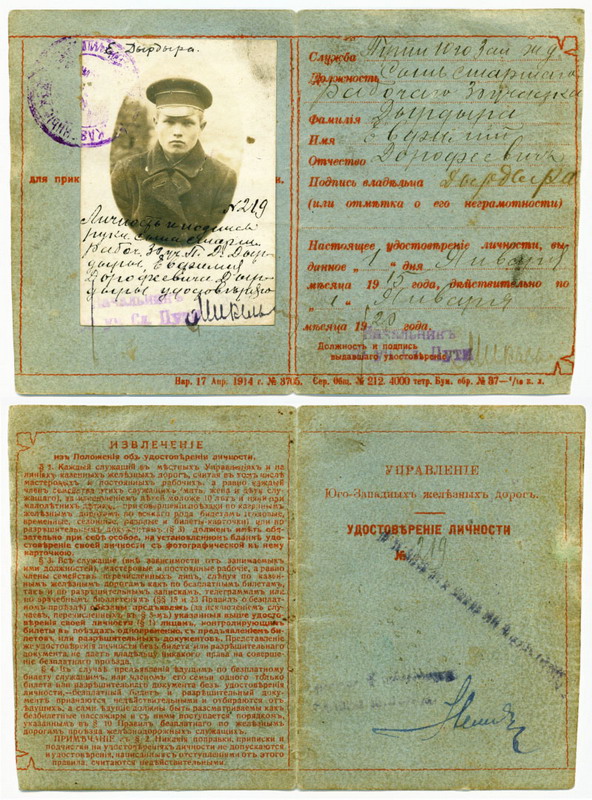 Е. Дырдыра.
для прик
и.
№ 219
Личность и подпись
руки сына старш.
рабоч.
Дорофеевича
удостовѣряю
Начальникъ
Сл. Пути
Служба Юго Зап ж д
Должность сына старшаго
рабочаго
Фамилія Дырдыра
Имя Евфимій
Отчество Дорофеевичъ
Подпись владѣльца Дырдыра
(или отмѣтка о его неграмотности)
Настоящее удостовѣреніе личности, вы-
данное „ 1 „ дня Января
мѣсяца 1915 года, дѣйствительно по
„ 1 „ Января
мѣсяца 1920 года.
Начальникъ
Должность и подпись
выдавшаго удостовѣреніе
Пути
Нар. 17 Апр. 1914 г. № 3705. Сер. Общ. № 212. 4000 тетр. Бум. обр. № 37—
ИЗВЛЕЧЕНІЕ
изъ Положенія объ удостовѣреніи личности.
§ 1. Каждый служащій въ мѣстныхъ Управленіяхъ и на
линіяхъ казенныхъ желѣзныхъ дорогъ, считая въ томъ числѣ
мастеровыхъ и постоянныхъ рабочихъ, а равно каждый
членъ семейства этихъ служащихъ (мать, жена и дѣти слу-
жащаго), за исключеніемъ дѣтей моложе 10 лѣтъ
при совершеніи поѣздки по казеннымъ
желѣзнымъ дорогамъ по всякаго рода билетамъ (годовые,
временные, сезонные, разовые и билеты-карточки) или по
разрѣшительнымъ документамъ (§ 3) долженъ имѣть обя-
зательно при себѣ особое, на установленномъ бланкѣ удо-
стовѣреніе своей личности съ фотографической въ немъ
карточкою.
§ 3. Всѣ служащіе (внѣ зависимости отъ занимаемыхъ
ими должностей), мастеровые и постоянные рабочіе, а равно
члены семействъ перечисленныхъ лицъ, слѣдуя по казен-
нымъ желѣзнымъ дорогамъ какъ по безплатнымъ билетамъ,
такъ и по разрѣшительнымъ запискамъ, телеграммамъ или
по врачебнымъ бюллетенямъ (§§ 15 и 23 Правилъ о безплат-
номъ проѣздѣ) обязаны предъявлять (за исключеніемъ слу-
чаевъ, перечисленныхъ въ § 5-мъ) указанныя выше удосто-
вѣренія своей личности (§ 1) лицамъ, контролирующимъ
билеты въ поѣздахъ одновременно, съ предъявленіемъ би-
летовъ или разрѣшительныхъ документовъ. Представленіе
же удостовѣренія личности безъ билета или разрѣшительнаго
документа, не даетъ владѣльцу никакого права на соверше-
ніе безплатнаго проѣзда.
§ 4. Въ случаѣ предъявленія ѣдущимъ по безплатному
билету служащимъ, или членомъ его семьи одного только
билета или разрѣшительнаго документа безъ удостовѣренія
личности,—безплатный билетъ и разрѣшительный доку-
ментъ признаются недѣйствительными и отбираются отъ
ѣдущихъ, а сами ѣдущіе должны быть разсматриваемы какъ
безбилетные пассажиры и съ ними поступается порядкомъ,
указаннымъ въ § 10 Правилъ безплатнаго по желѣзнымъ
дорогамъ проѣзда желѣзнодорожныхъ служащихъ.
ПРИМѢЧАНІЕ къ § 2. Никакія поправки, приписки и
подчистки на удостовѣреніяхъ личности не допускаются
и удостовѣренія, написанныя съ отступленіями отъ этого
правила, считаются недѣйствительными.
УПРАВЛЕНІЕ
Юго-Западныхъ желѣзныхъ дорогъ.
УДОСТОВѢРЕНІЕ ЛИЧНОСТИ
№ 219